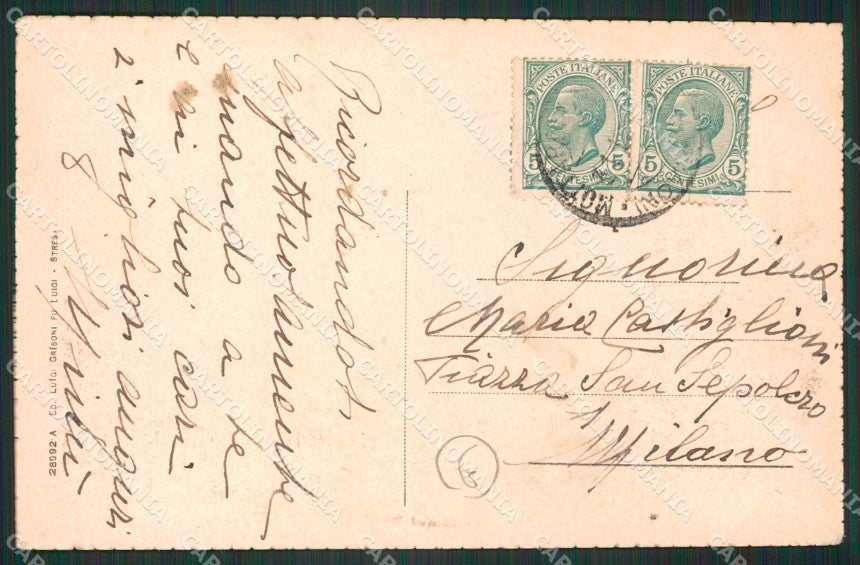 Ricordandoti
affettuosamente
mando a te
e ai tuoi cari
i migliori auguri
28992 A ED. LUIGI GRISONI FU LUIGI - STRESA
POSTE ITALIANE
5 5
CENTESIMI
POSTE ITALIANE
5 5
CENTESIMI
Signorina
Maria Castiglioni
Piazza San Sepolcro
1
Milano
CARTOLINOMANIA